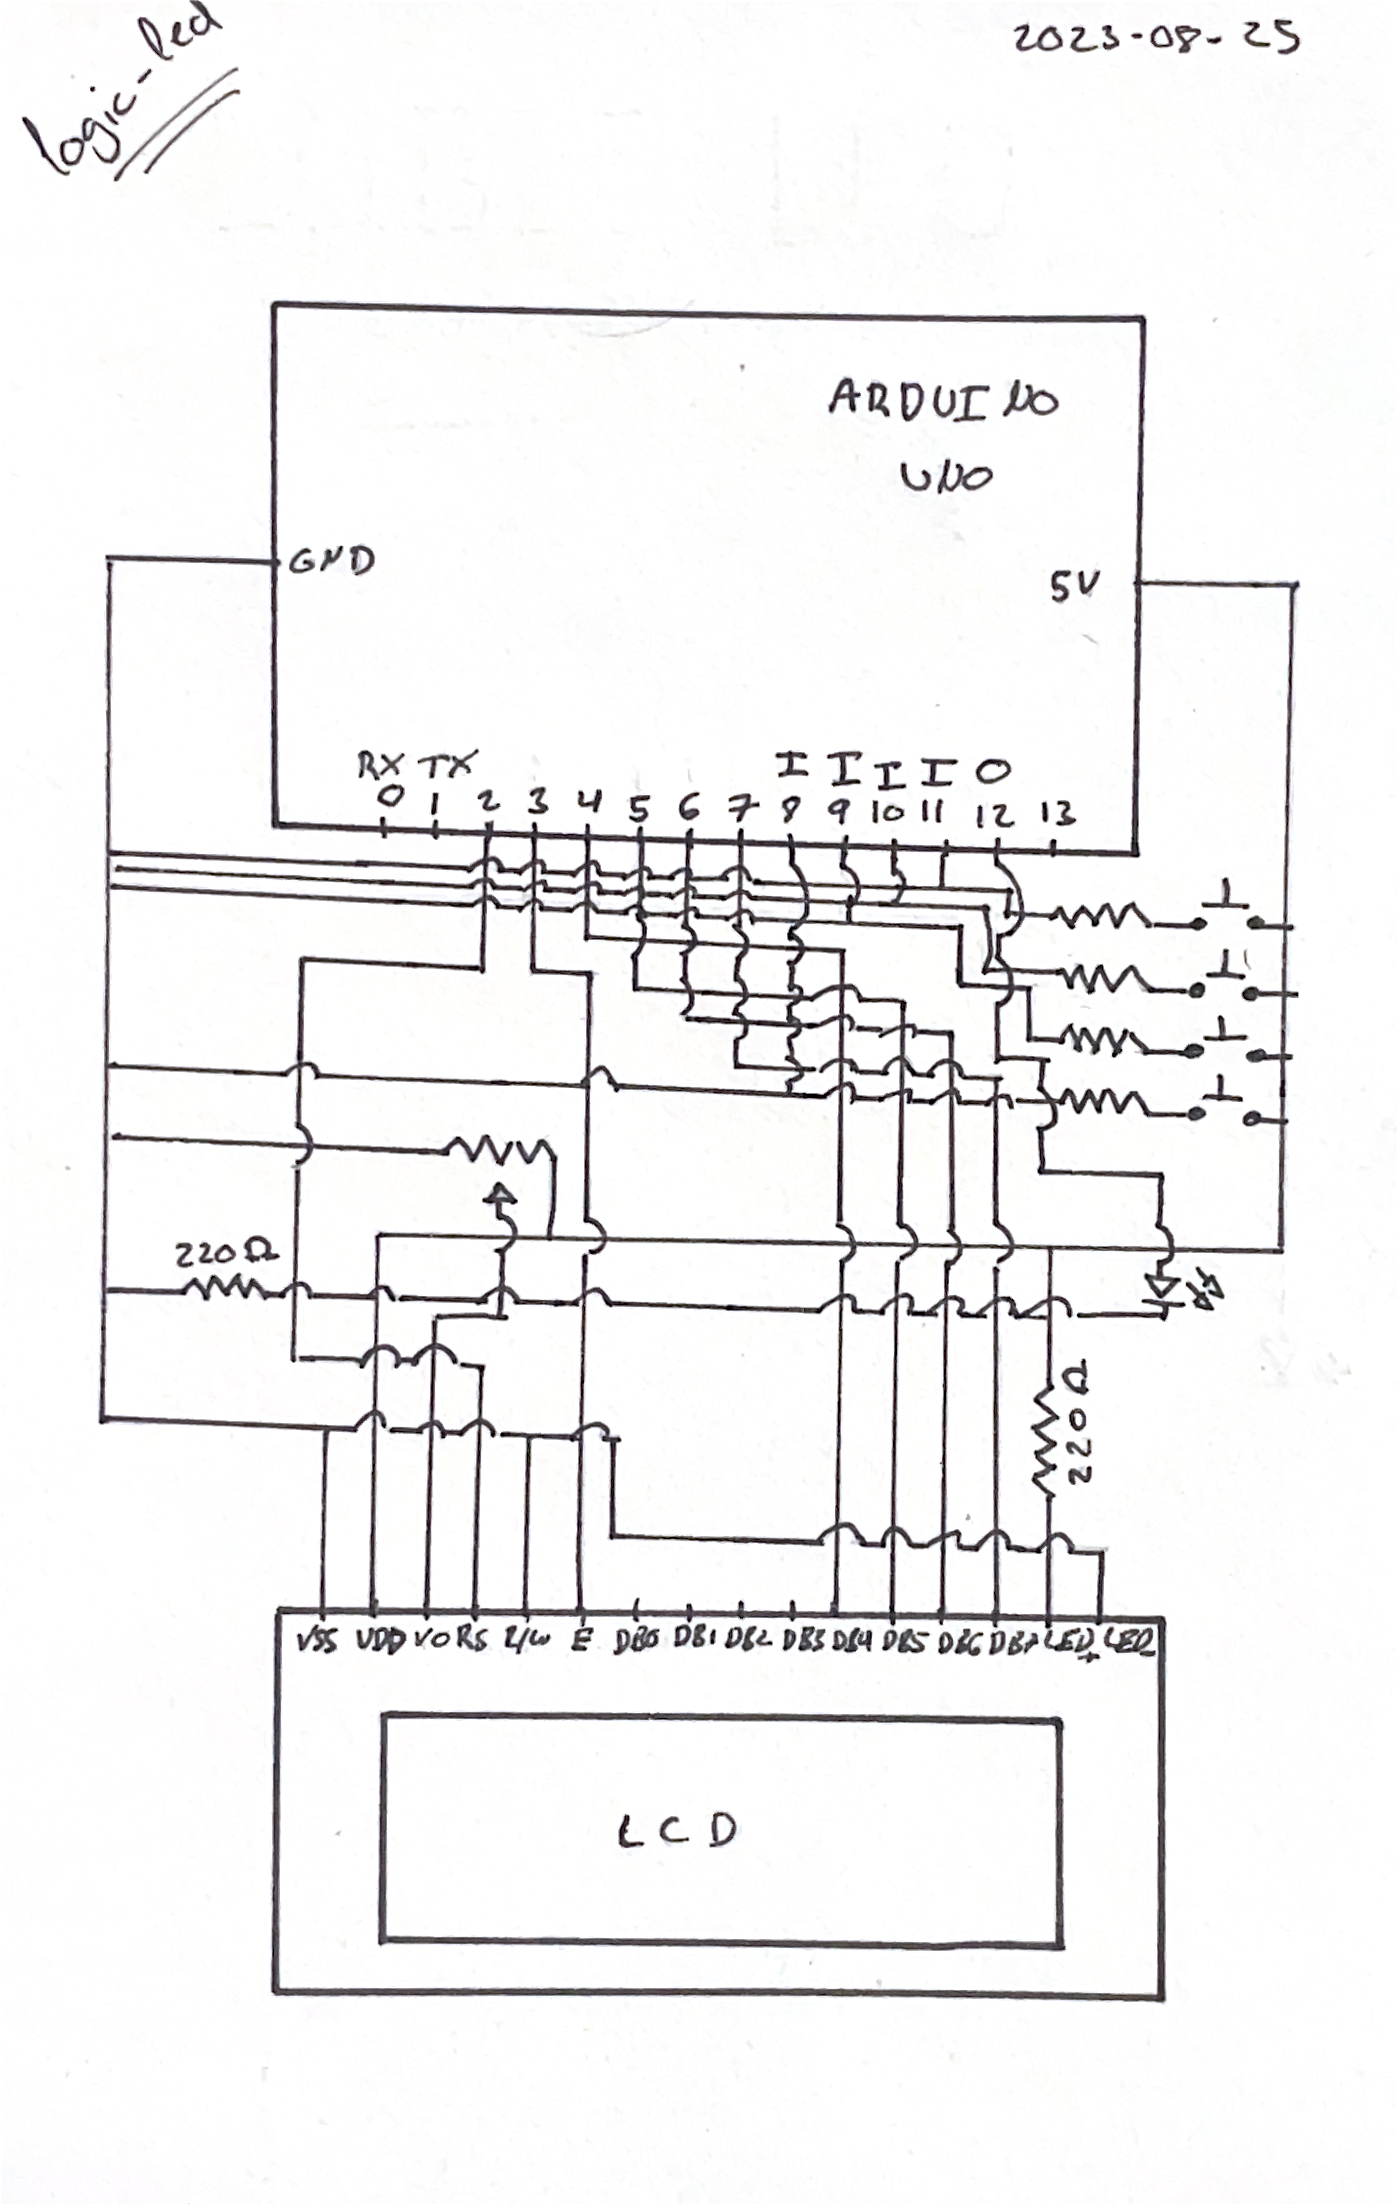 logic-led
2023-08-25
ARDUINO
UNO
GND
5V
RX TX I I I I O
0 1 2 3 4 5 6 7 8 9 10 11 12 13
220Ω
220Ω
VSS VDD VO RS R/W E DB0 DB1 DB2 DB3 DB4 DB5 DB6 DB7 LED+ LED-
LCD